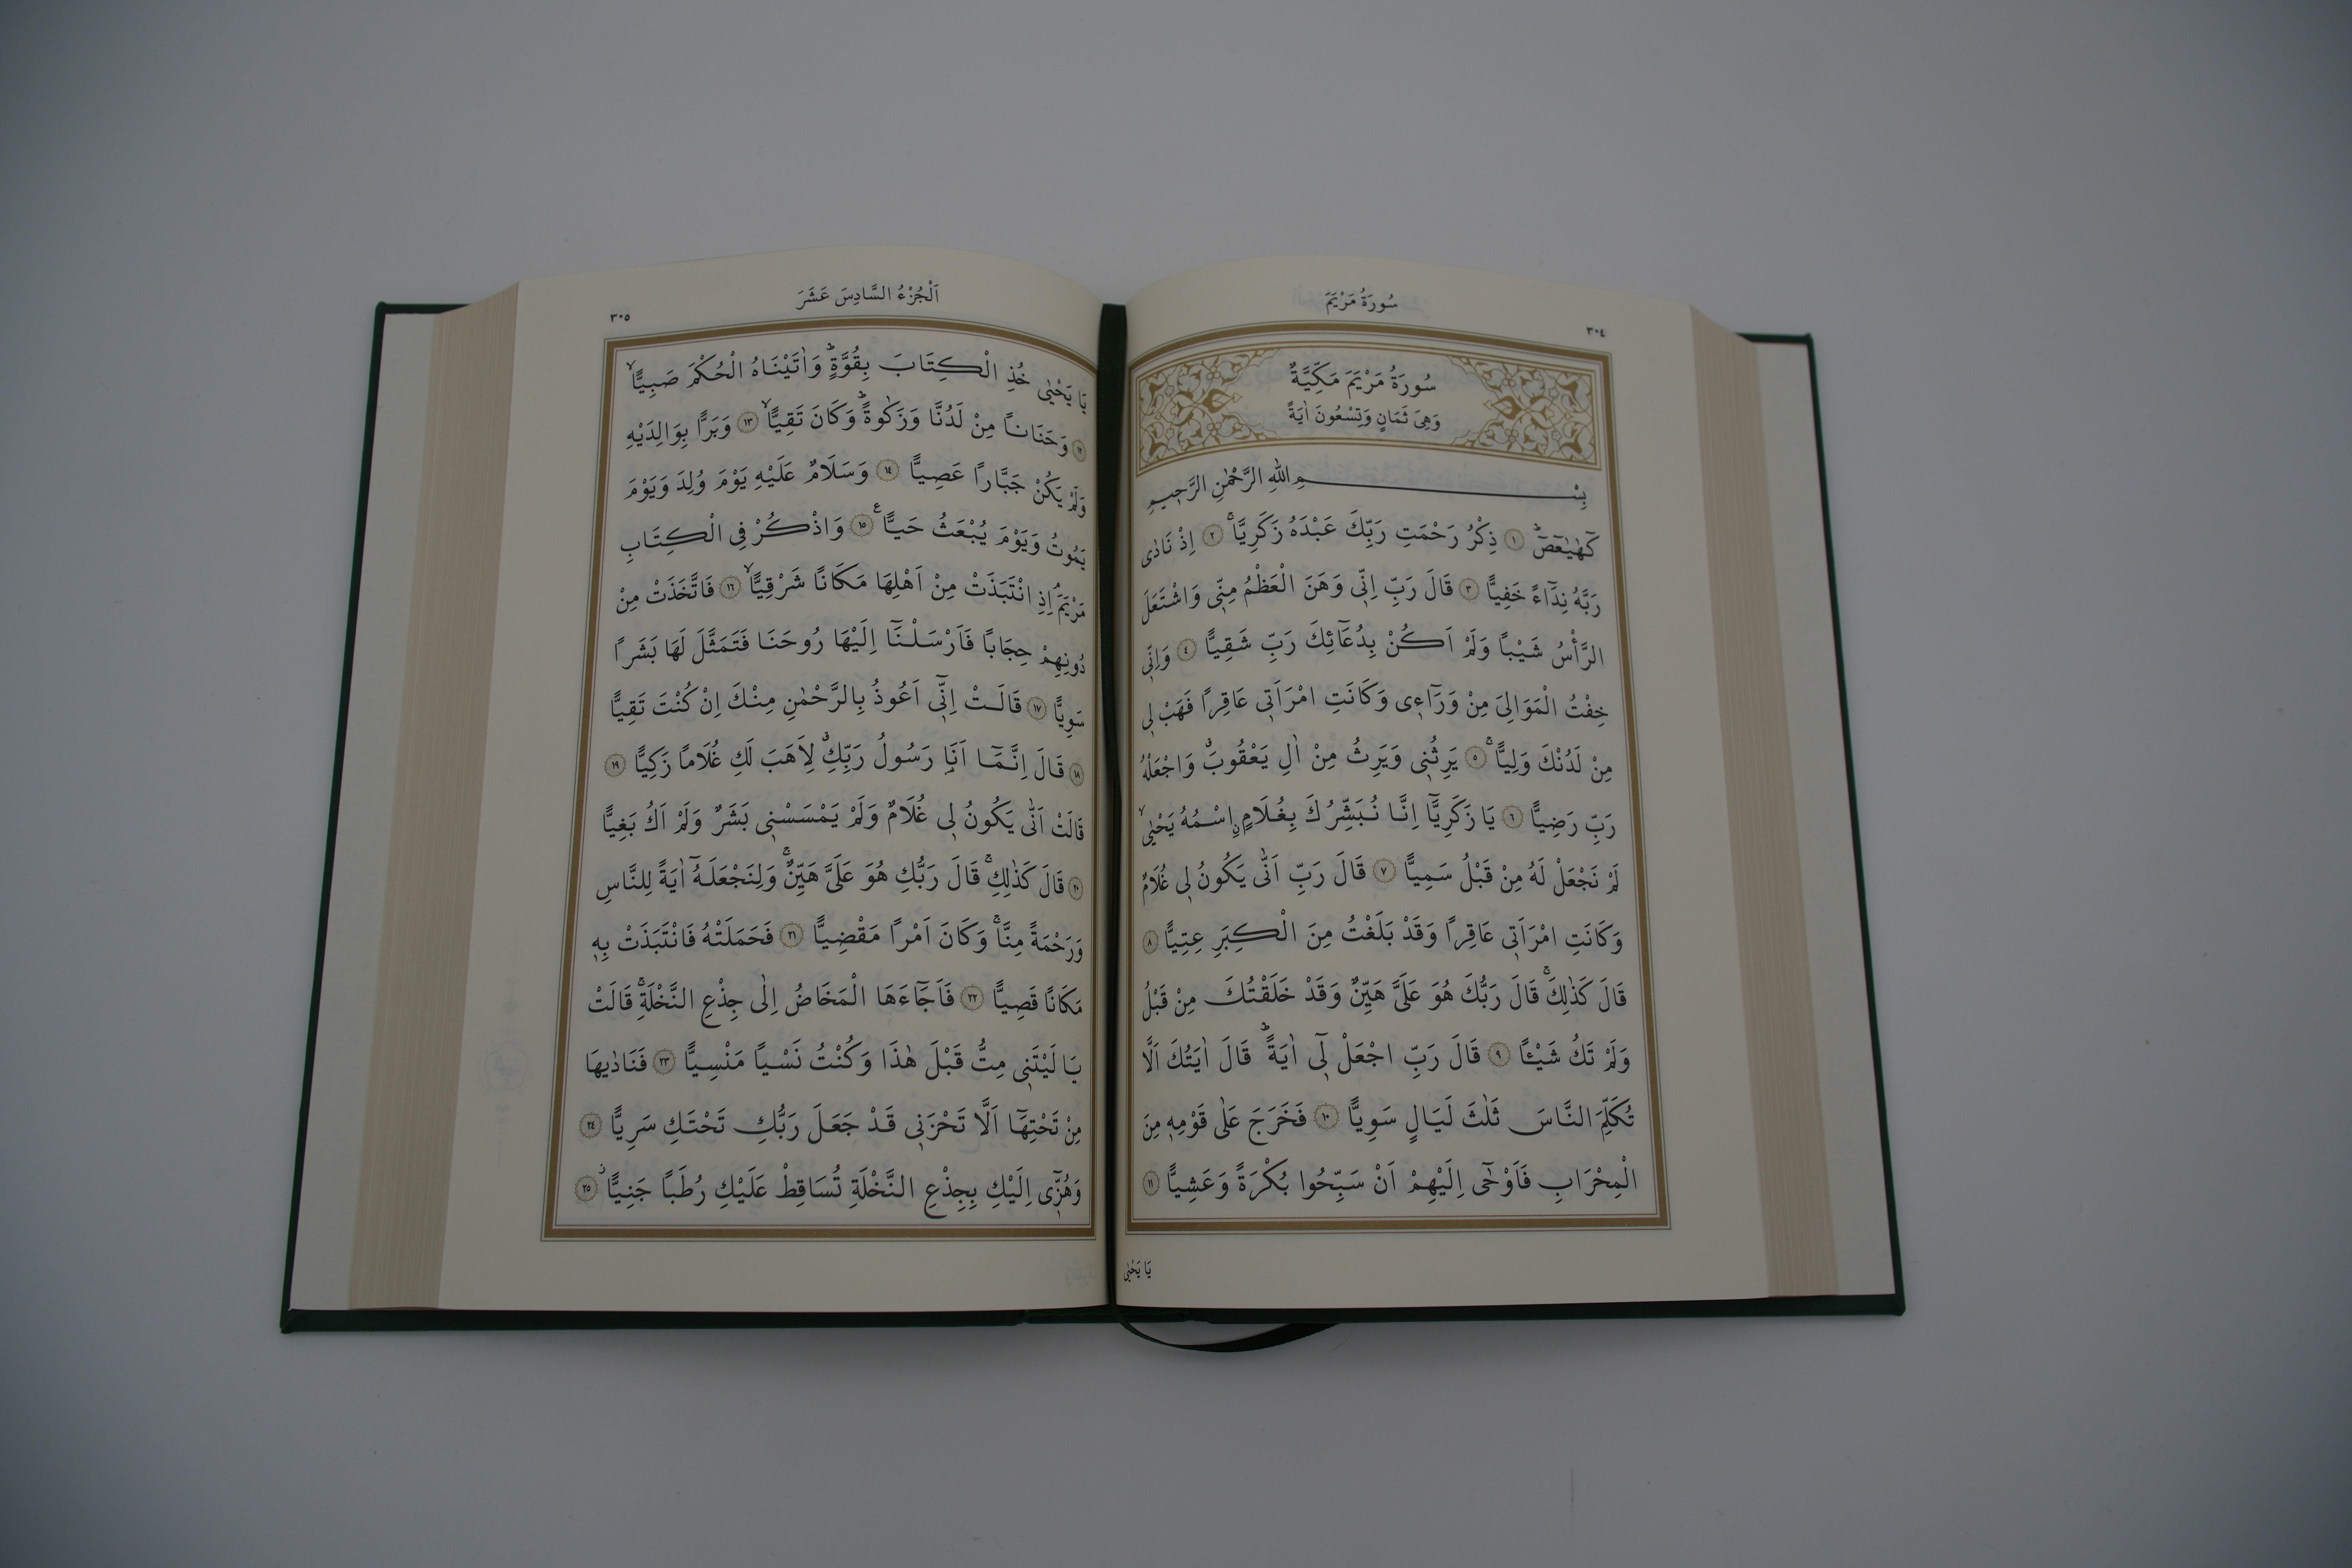 سُورَةُ مَرْيَمَ
٣٠٤
سُورَةُ مَرْيَمَ مَكِّيَّةٌ
وَهِىَ ثَمَانٍ وَتِسْعُونَ اٰيَةً
بِسْمِ اللّٰهِ الرَّحْمٰنِ الرَّح۪يمِ
كٓهٰيٰعٓصٓۜ ﴿١﴾ ذِكْرُ رَحْمَتِ رَبِّكَ عَبْدَهُ زَكَرِيَّاۚ ﴿٢﴾ اِذْ نَادٰى
رَبَّهُ نِدَٓاءً خَفِياًّ ﴿٣﴾ قَالَ رَبِّ اِنّ۪ى وَهَنَ الْعَظْمُ مِنّ۪ى وَاشْتَعَلَ
الرَّأْسُ شَيْباً وَلَمْ اَكُنْ بِدُعَٓائِكَ رَبِّ شَقِياًّ ﴿٤﴾ وَاِنّ۪ى
خِفْتُ الْمَوَالِىَ مِنْ وَرَٓاء۪ى وَكَانَتِ امْرَاَت۪ى عَاقِراً فَهَبْ ل۪ى
مِنْ لَدُنْكَ وَلِياًّۚ ﴿٥﴾ يَرِثُن۪ى وَيَرِثُ مِنْ اٰلِ يَعْقُوبَۗ وَاجْعَلْهُ
رَبِّ رَضِياًّ ﴿٦﴾ يَا زَكَرِيَّٓا اِنَّا نُبَشِّرُكَ بِغُلَامٍۨ اسْمُهُ يَحْيٰىۙ
لَمْ نَجْعَلْ لَهُ مِنْ قَبْلُ سَمِياًّ ﴿٧﴾ قَالَ رَبِّ اَنّٰى يَكُونُ ل۪ى غُلَامٌ
وَكَانَتِ امْرَاَت۪ى عَاقِراً وَقَدْ بَلَغْتُ مِنَ الْكِبَرِ عِتِياًّ ﴿٨﴾
قَالَ كَذٰلِكَۚ قَالَ رَبُّكَ هُوَ عَلَىَّ هَيِّنٌ وَقَدْ خَلَقْتُكَ مِنْ قَبْلُ
وَلَمْ تَكُ شَيْـٔاً ﴿٩﴾ قَالَ رَبِّ اجْعَلْ ل۪ٓى اٰيَةًۜ قَالَ اٰيَتُكَ اَلَّا
تُكَلِّمَ النَّاسَ ثَلٰثَ لَيَالٍ سَوِياًّ ﴿١٠﴾ فَخَرَجَ عَلٰى قَوْمِه۪ مِنَ
الْمِحْرَابِ فَاَوْحٰٓى اِلَيْهِمْ اَنْ سَبِّحُوا بُكْرَةً وَعَشِياًّ ﴿١١﴾
يَا يَحْيٰى
اَلْجُزْءُ السَّادِسَ عَشَرَ
٣٠٥
يَا يَحْيٰى خُذِ الْكِتَابَ بِقُوَّةٍۜ وَاٰتَيْنَاهُ الْحُكْمَ صَبِياًّۙ
﴿١٢﴾ وَحَنَاناً مِنْ لَدُنَّا وَزَكٰوةًۜ وَكَانَ تَقِياًّۙ ﴿١٣﴾ وَبَراًّ بِوَالِدَيْهِ
وَلَمْ يَكُنْ جَبَّاراً عَصِياًّ ﴿١٤﴾ وَسَلَامٌ عَلَيْهِ يَوْمَ وُلِدَ وَيَوْمَ
يَمُوتُ وَيَوْمَ يُبْعَثُ حَياًّ۟ ﴿١٥﴾ وَاذْكُرْ فِى الْكِتَابِ
مَرْيَمَۢ اِذِ انْتَبَذَتْ مِنْ اَهْلِهَا مَكَاناً شَرْقِياًّۙ ﴿١٦﴾ فَاتَّخَذَتْ مِنْ
دُونِهِمْ حِجَاباً فَاَرْسَلْنَٓا اِلَيْهَا رُوحَنَا فَتَمَثَّلَ لَهَا بَشَراً
سَوِياًّ ﴿١٧﴾ قَالَتْ اِنّ۪ٓى اَعُوذُ بِالرَّحْمٰنِ مِنْكَ اِنْ كُنْتَ تَقِياًّ
﴿١٨﴾ قَالَ اِنَّمَٓا اَنَا۬ رَسُولُ رَبِّكِۗ لِاَهَبَ لَكِ غُلَاماً زَكِياًّ ﴿١٩﴾
قَالَتْ اَنّٰى يَكُونُ ل۪ى غُلَامٌ وَلَمْ يَمْسَسْن۪ى بَشَرٌ وَلَمْ اَكُ بَغِياًّ
﴿٢٠﴾ قَالَ كَذٰلِكِۚ قَالَ رَبُّكِ هُوَ عَلَىَّ هَيِّنٌۚ وَلِنَجْعَلَهُٓ اٰيَةً لِلنَّاسِ
وَرَحْمَةً مِنَّاۚ وَكَانَ اَمْراً مَقْضِياًّ ﴿٢١﴾ فَحَمَلَتْهُ فَانْتَبَذَتْ بِه۪
مَكَاناً قَصِياًّ ﴿٢٢﴾ فَاَجَٓاءَهَا الْمَخَاضُ اِلٰى جِذْعِ النَّخْلَةِۚ قَالَتْ
يَا لَيْتَن۪ى مِتُّ قَبْلَ هٰذَا وَكُنْتُ نَسْياً مَنْسِياًّ ﴿٢٣﴾ فَنَادٰيهَا
مِنْ تَحْتِهَٓا اَلَّا تَحْزَن۪ى قَدْ جَعَلَ رَبُّكِ تَحْتَكِ سَرِياًّ ﴿٢٤﴾
وَهُزّ۪ٓى اِلَيْكِ بِجِذْعِ النَّخْلَةِ تُسَاقِطْ عَلَيْكِ رُطَباً جَنِياًّۘ ﴿٢٥﴾